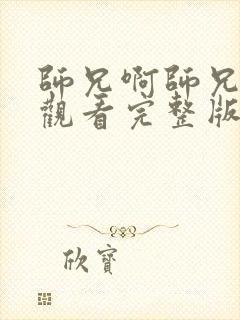 師兄啊師兄
觀看完整版
欣寶